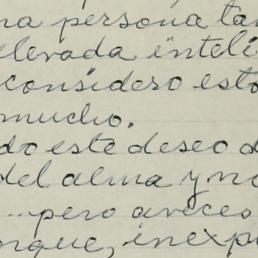 na persona tan
elevada inteli
considero esto
mucho.
do este deseo d
del alma y no
...pero aveces
orque, inexp